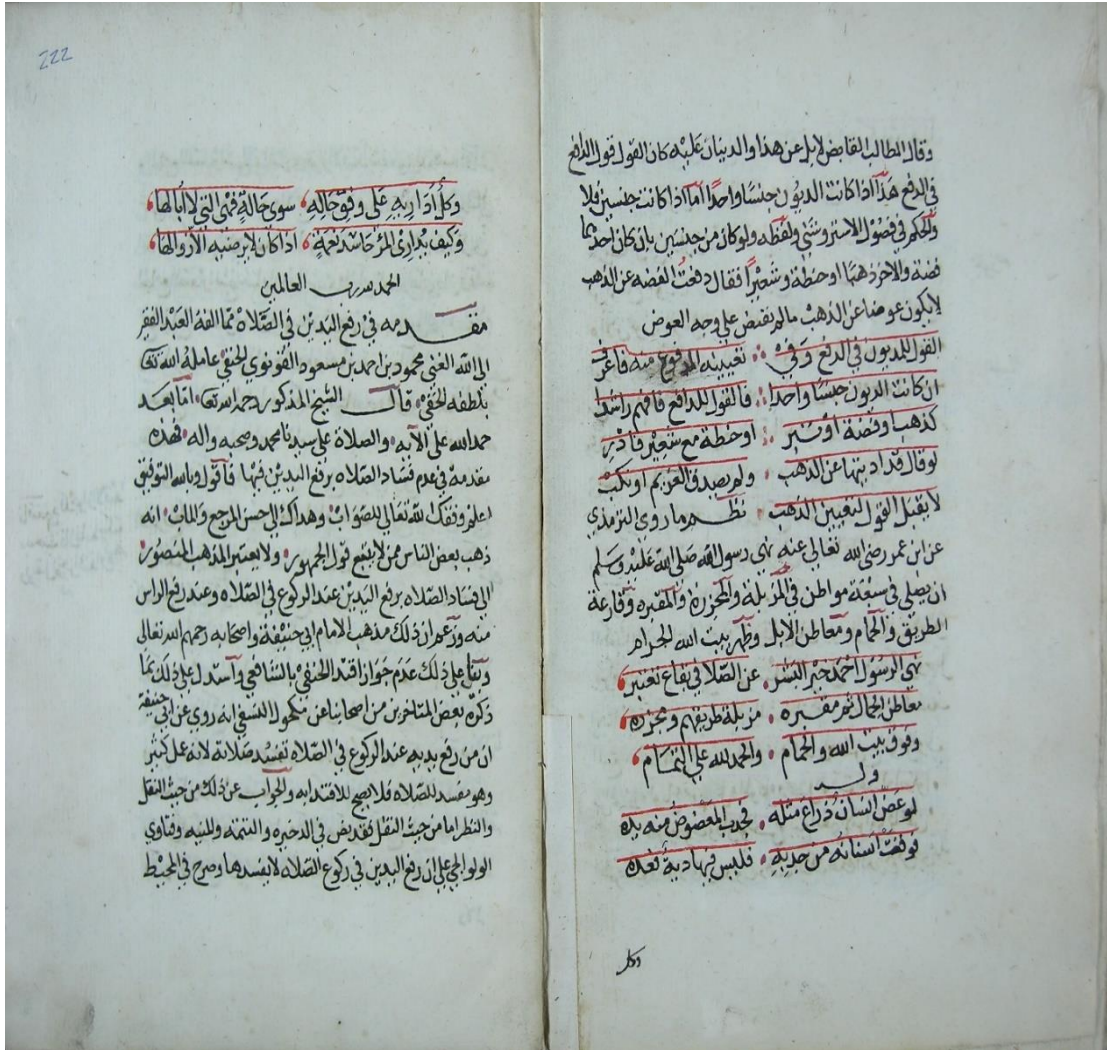 وقال الطالب القابض لابل عن هذا والدينان عليه كان القول قول الدافع
في الدفع هذا اذا كانت الديون جنسا واحدا اما اذا كانت جنسين فلا
والحكم في فصول الاستروشني ولفظه ولو كان من جنسين بان كان احدهما
فضة والاخر ذهبا او حنطة وشعيرا فقال دفعت الفضه عن الذهب
لا يكون عوضا عن الذهب مالم يقبض علي وجه العوض
القول للمديون في الدفع وفي تعيينه المدفوع منه فاعرف
ان كانت الديون جنسا واحدا فالقول للدافع فافهم راشدا
كذهب او فضة او تبر او حنطة مع شعير فادر
لو قال قد اديتها عن الذهب ولم يصدق الغريم او نكب
لا يقبل القول لتعيين الذهب نظم ما روي الترمذي
عن ابن عمر رضى الله تعالي عنه نهى رسول الله صلى الله عليه وسلم
ان يصلى في سبعة مواطن في المزبلة والمجزرة والمقبره وقارعة
الطريق والحمام ومعاطن الابل وظهر بيت الله الحرام
نهى الرسول احمد خير البشر عن الصلا في بقاع تعتبر
معاطن الجمال ثم مقبره مزبلة طريقهم ومجزره
وفوق بيت الله والحمام والحمد لله علي التمام
وله
لو عض انسان ذراع مثله فجذب المعضوض منه يده
فوقعت اسنانه من جذبه فليس فيها دية
وكل
222
وكل اداريه على وفق حاله سوى حالة فهي التي لا ابالها
وكيف يداري المرء حاسد نعمة اذا كان لا يرضيه الا زوالها
الحمد لله رب العالمين
مقدمه في رفع اليدين في الصلاة مما الفه العبد الفقير
الى الله الغني محمود بن احمد بن مسعود القونوي الحنفي عامله الله تعا
بلطفه الخفي قال الشيخ المذكور رحمه الله تعا اما بعد
حمد الله على الآيه والصلاة على سيدنا محمد وصحبه واله فهذه
مقدمة في عدم فساد الصلاه برفع اليدين فيها فاقول وبالله التوفيق
اعلم وفقك الله تعالي للصواب وهداك الي حسن المرجع والماب انه
ذهب بعض الناس ممن لا يتبع قول الجمهور ولا يعتبر المذهب المنصور
الي فساد الصلاه برفع اليدين عند الركوع في الصلاه وعند رفع الراس
منه وزعم ان ذلك مذهب الامام ابي حنيفة واصحابه رحمهم الله تعالى
وبنى علي ذلك عدم جواز اقتدا الحنفي بالشافعي واستدل علي ذلك بما
ذكره بعض المتاخرين من اصحابنا عن مكحول النسفي انه روي عن ابي حنيفة
ان من رفع يديه عند الركوع في الصلاه تفسد صلاته لانه عمل كثير
وهو مفسد للصلاه فلا يصح الاقتدا به والجواب عن ذلك من حيث النقل
والنظر اما من حيث النقل فقد نص في الذخيره والتتمة والمنيه وفتاوي
الولوالجي على ان رفع اليدين في ركوع الصلاه لا يفسدها وصرح في المحيط